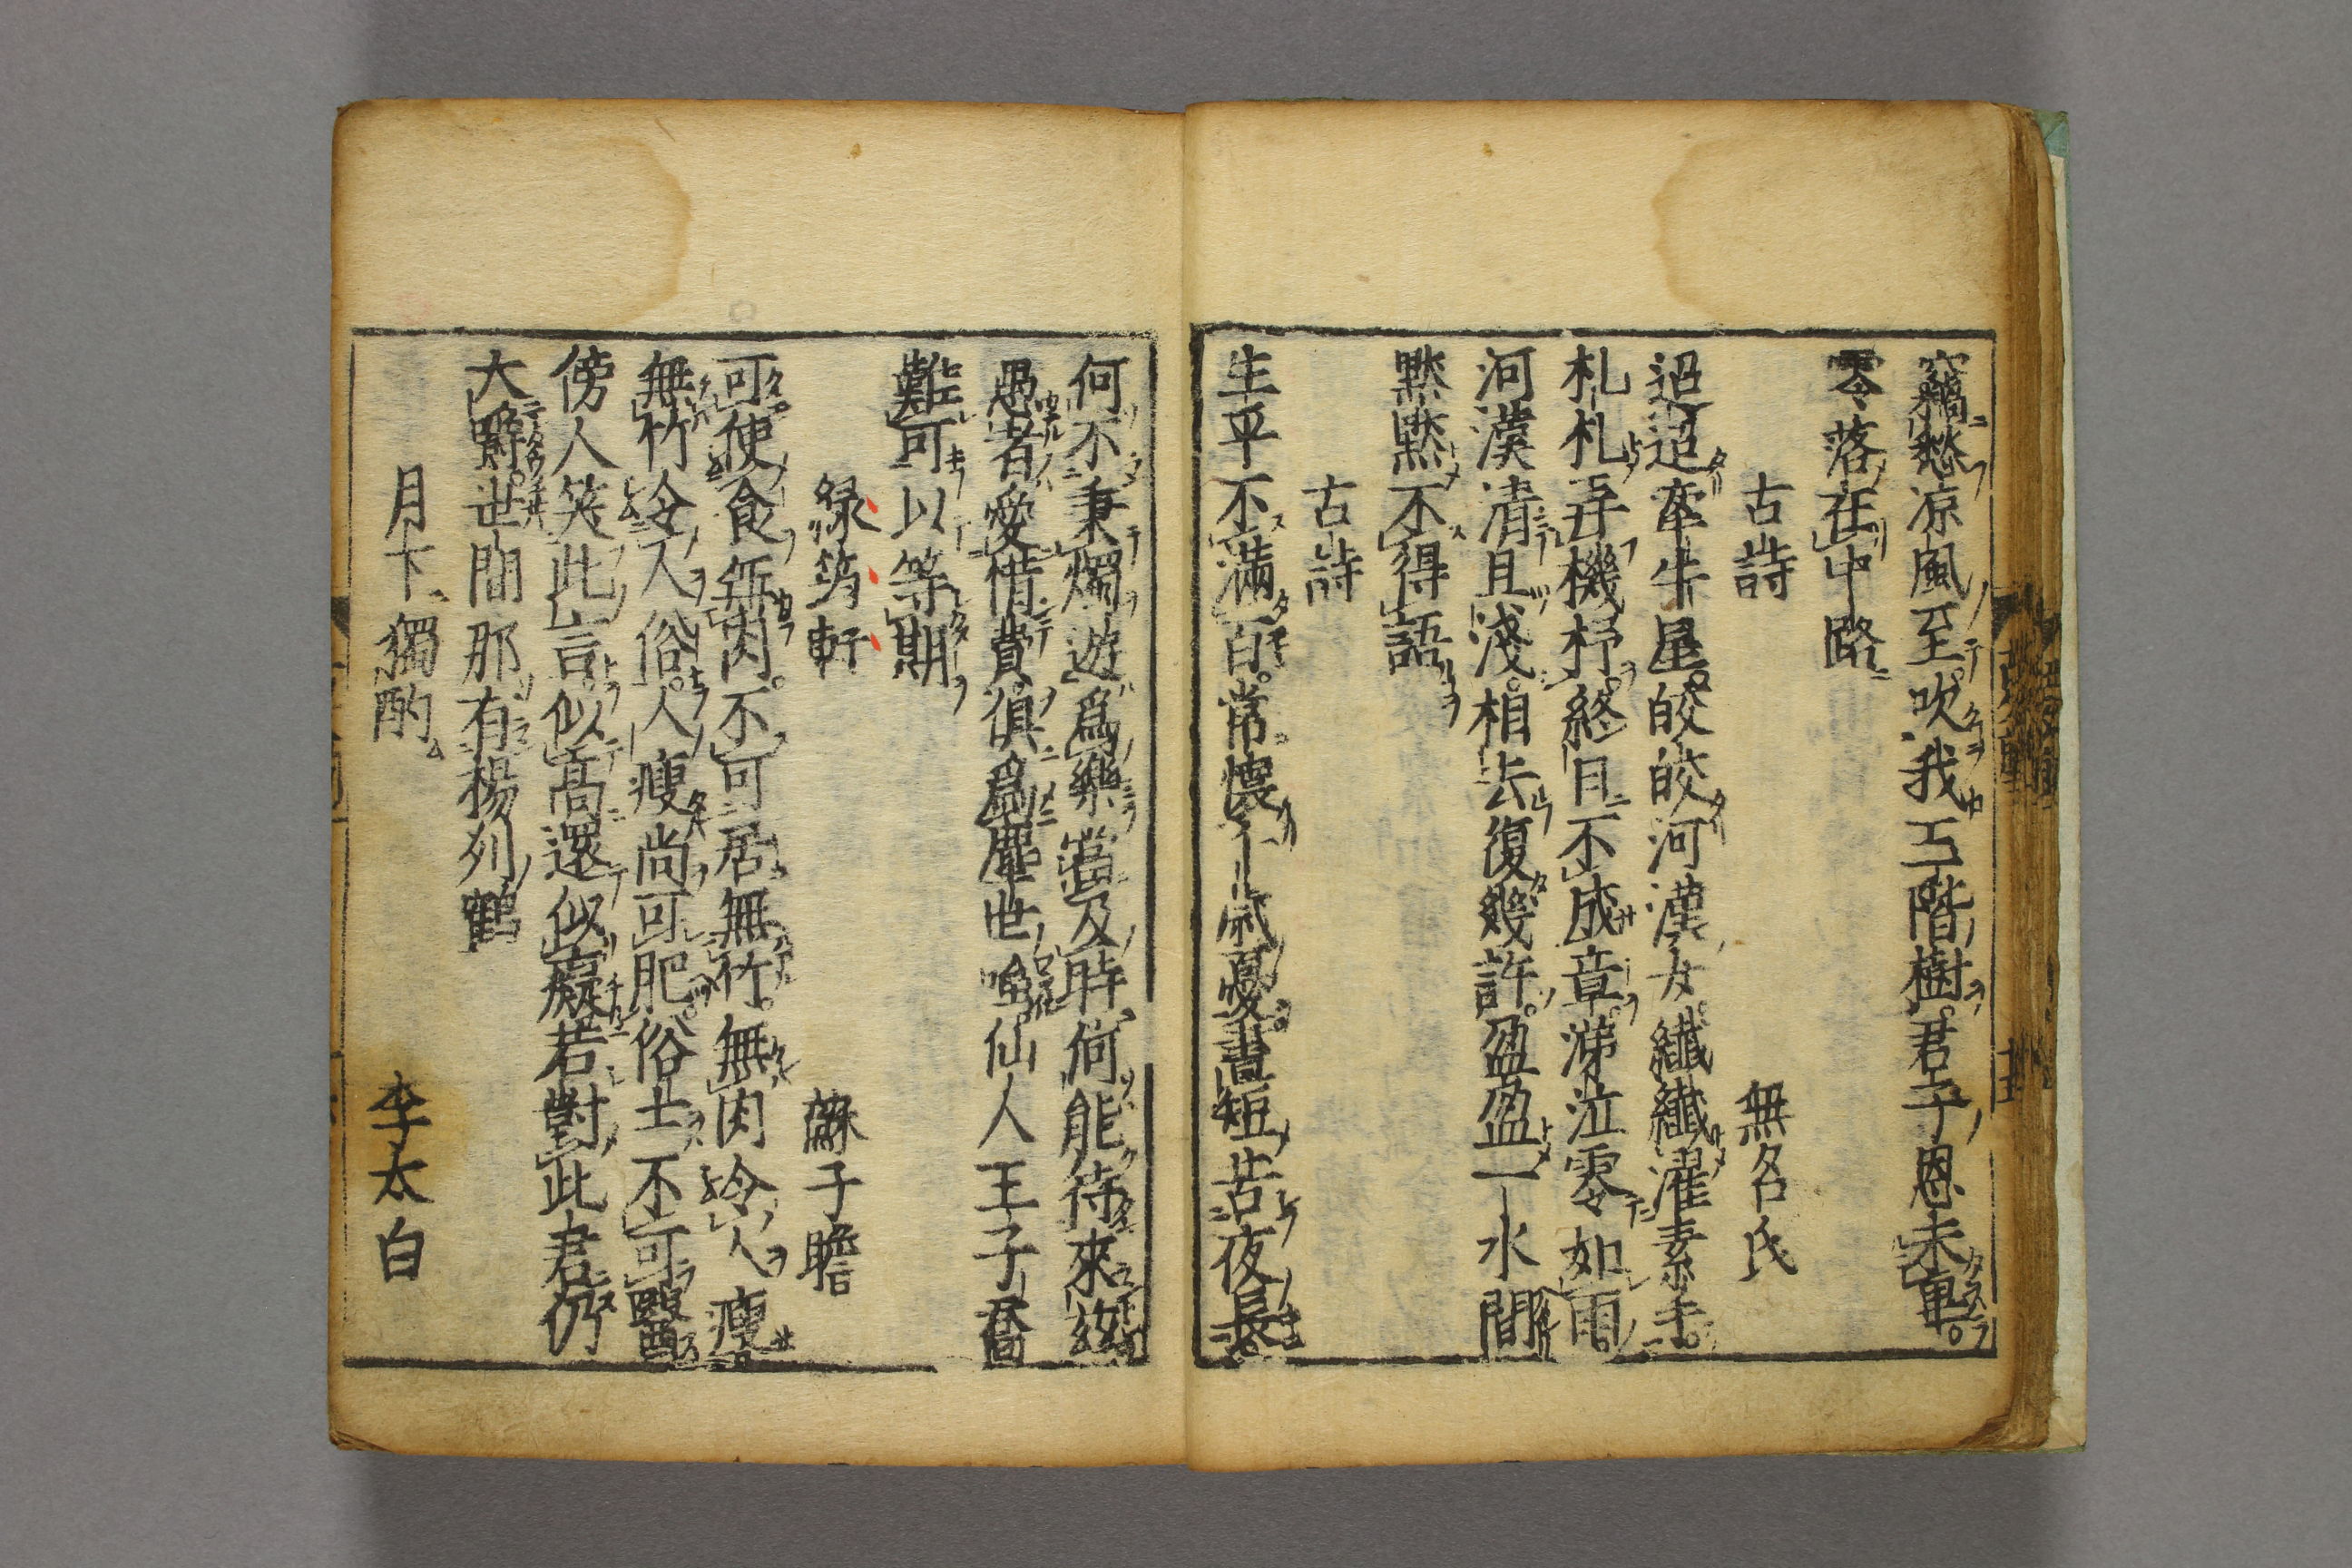 竊愁凉風至。吹我玉階樹。君子恩未畢。
零落在中路
古詩 無名氏
迢迢牽牛星。皎皎河漢女。纖纖濯素手。
札札弄機杼。終日不成章。涕泣零如雨。
河漢清且淺。相去復幾許。盈盈一水間
默默不得語
古詩
生平不滿百。常懷千歲憂。晝短苦夜長。
何不秉燭遊爲樂當及時何能待來兹
愚者愛惜費。俱爲塵世嗤仙人王子喬
難可以等期
緑筠軒 蘇子瞻
可使食無肉。不可居無竹。無肉令人瘦。
無竹令人俗。人瘦尚可肥。俗士不可醫
傍人笑此言。似高還似癡若對此君仍
大嚼。世間那有揚州鶴
月下獨酌 李太白